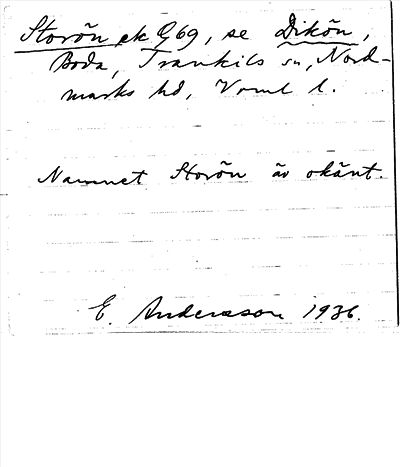 Storön ek G69, se Dikön,
Boda, Trankils sn, Nord-
marks hd, Vrml l.
Namnet Storön är okänt.
E. Andersson 1936.